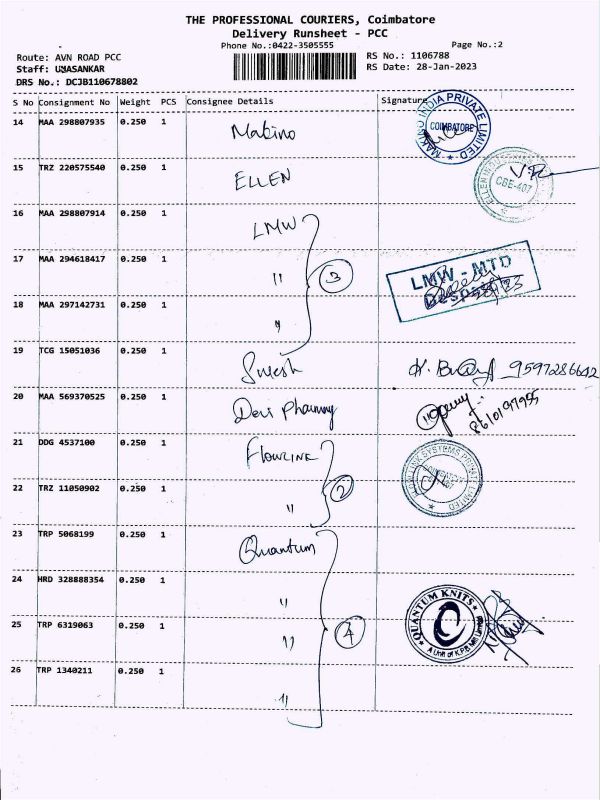 THE PROFESSIONAL COURIERS, Coimbatore
Delivery Runsheet - PCC
Phone No.:0422-3505555
Page No.:2
Route: AVN ROAD PCC
RS No.: 1106788
Staff: UMASANKAR
RS Date: 28-Jan-2023
DRS No.: DCJB110678802
S No Consignment No Weight PCS Consignee Details Signature
14 MAA 298807935 0.250 1 Makino
MAKINO INDIA PRIVATE LIMITED
COIMBATORE
15 TRZ 220575540 0.250 1 ELLEN
CBE-407
16 MAA 298807914 0.250 1 LMW
17 MAA 294618417 0.250 1 " 3
LMW - MTD
Despatch
18 MAA 297142731 0.250 1 "
19 TCG 15051036 0.250 1 Suresh 9597286642
20 MAA 569370525 0.250 1 Devi Pharmacy 8610197955
21 DDG 4537100 0.250 1 FLOWLINK
22 TRZ 11050902 0.250 1 " 2
23 TRP 5068199 0.250 1 Quantum
24 HRD 328888354 0.250 1 "
25 TRP 6319063 0.250 1 " 4
QUANTUM KNITS
A Unit of K.P.R Mill Limited
26 TRP 1340211 0.250 1 "